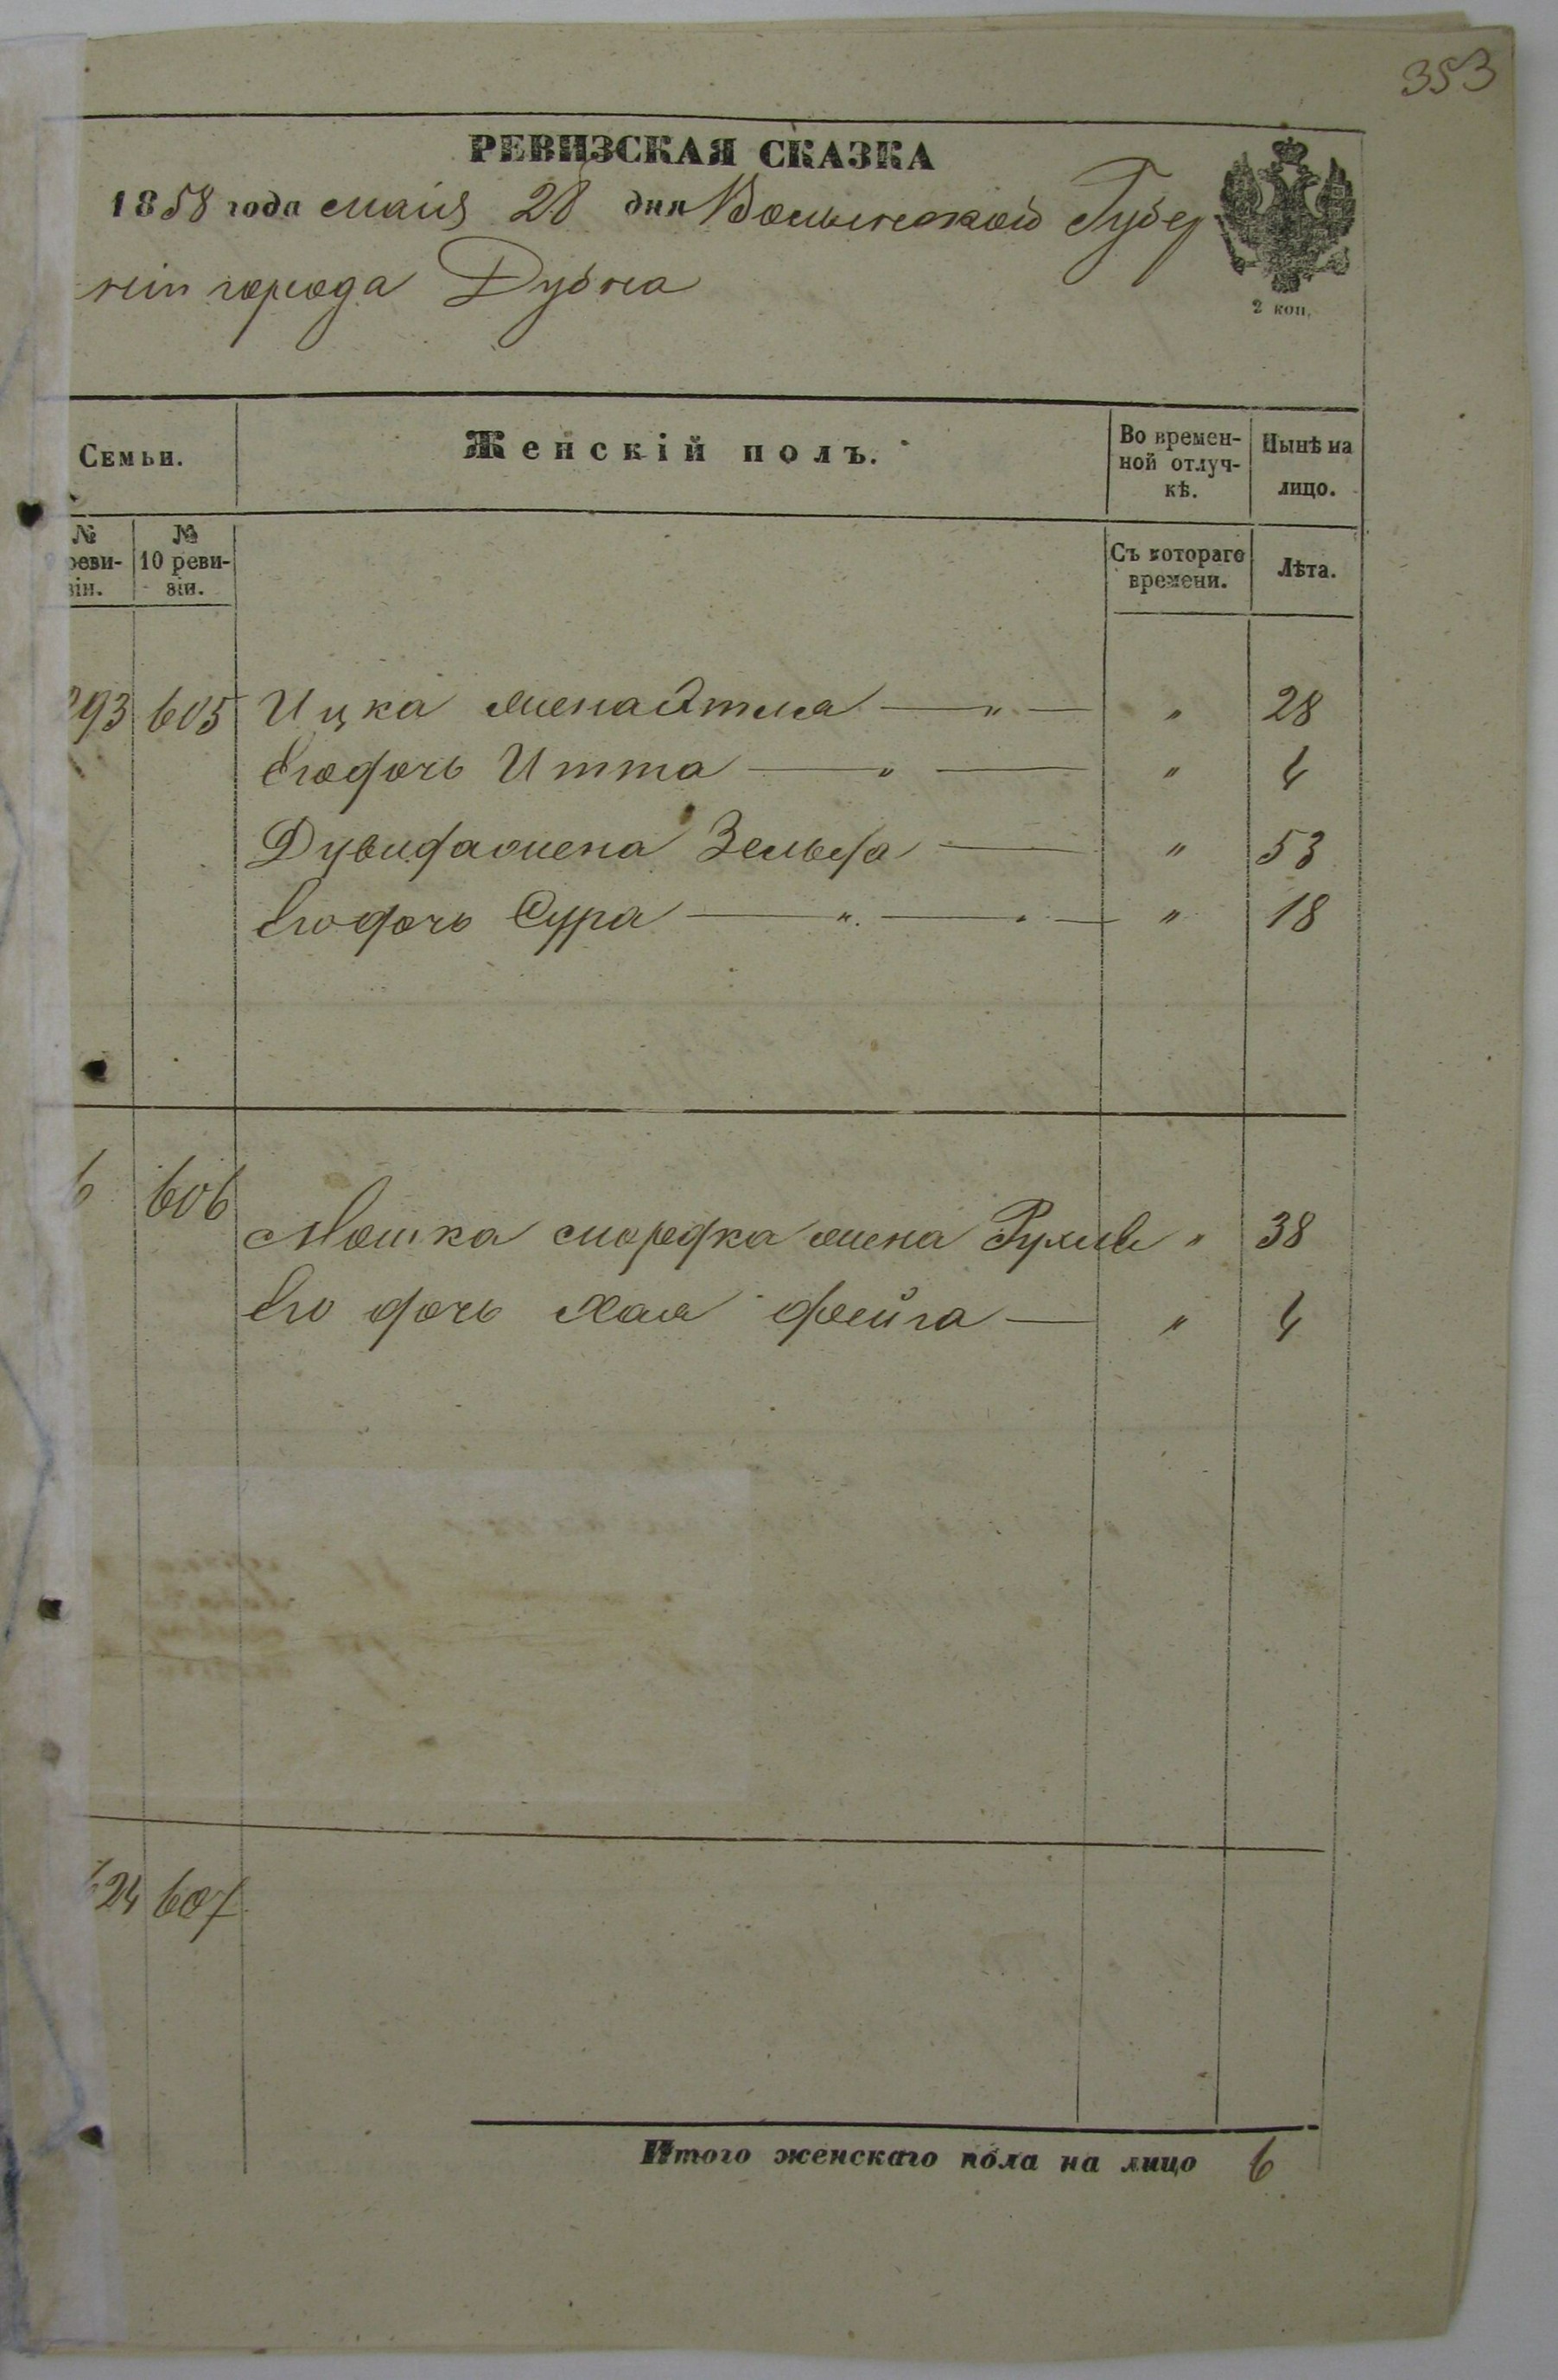 353
РЕВИЗСКАЯ СКАЗКА
1858 года маія 28 дня Волынской Губер
ніи города Дубна
2 коп.
Семьи.
Женскій полъ.
Во времен-
ной отлуч-
кѣ.
Нынѣ на
лицо.
№
реви-
зіи.
№
10 реви-
зіи.
Съ котораго
времени.
Лѣта.
293 605 Ицка жена " " 28
его дочь Итта " " 4
Дувида жена Зельда " 53
его дочь Сура " " 18
6 606
Мошка Мордка жена Рухля " 38
его дочь Хая Фейга " 4
24 607
Итого женскаго пола на лицо 6